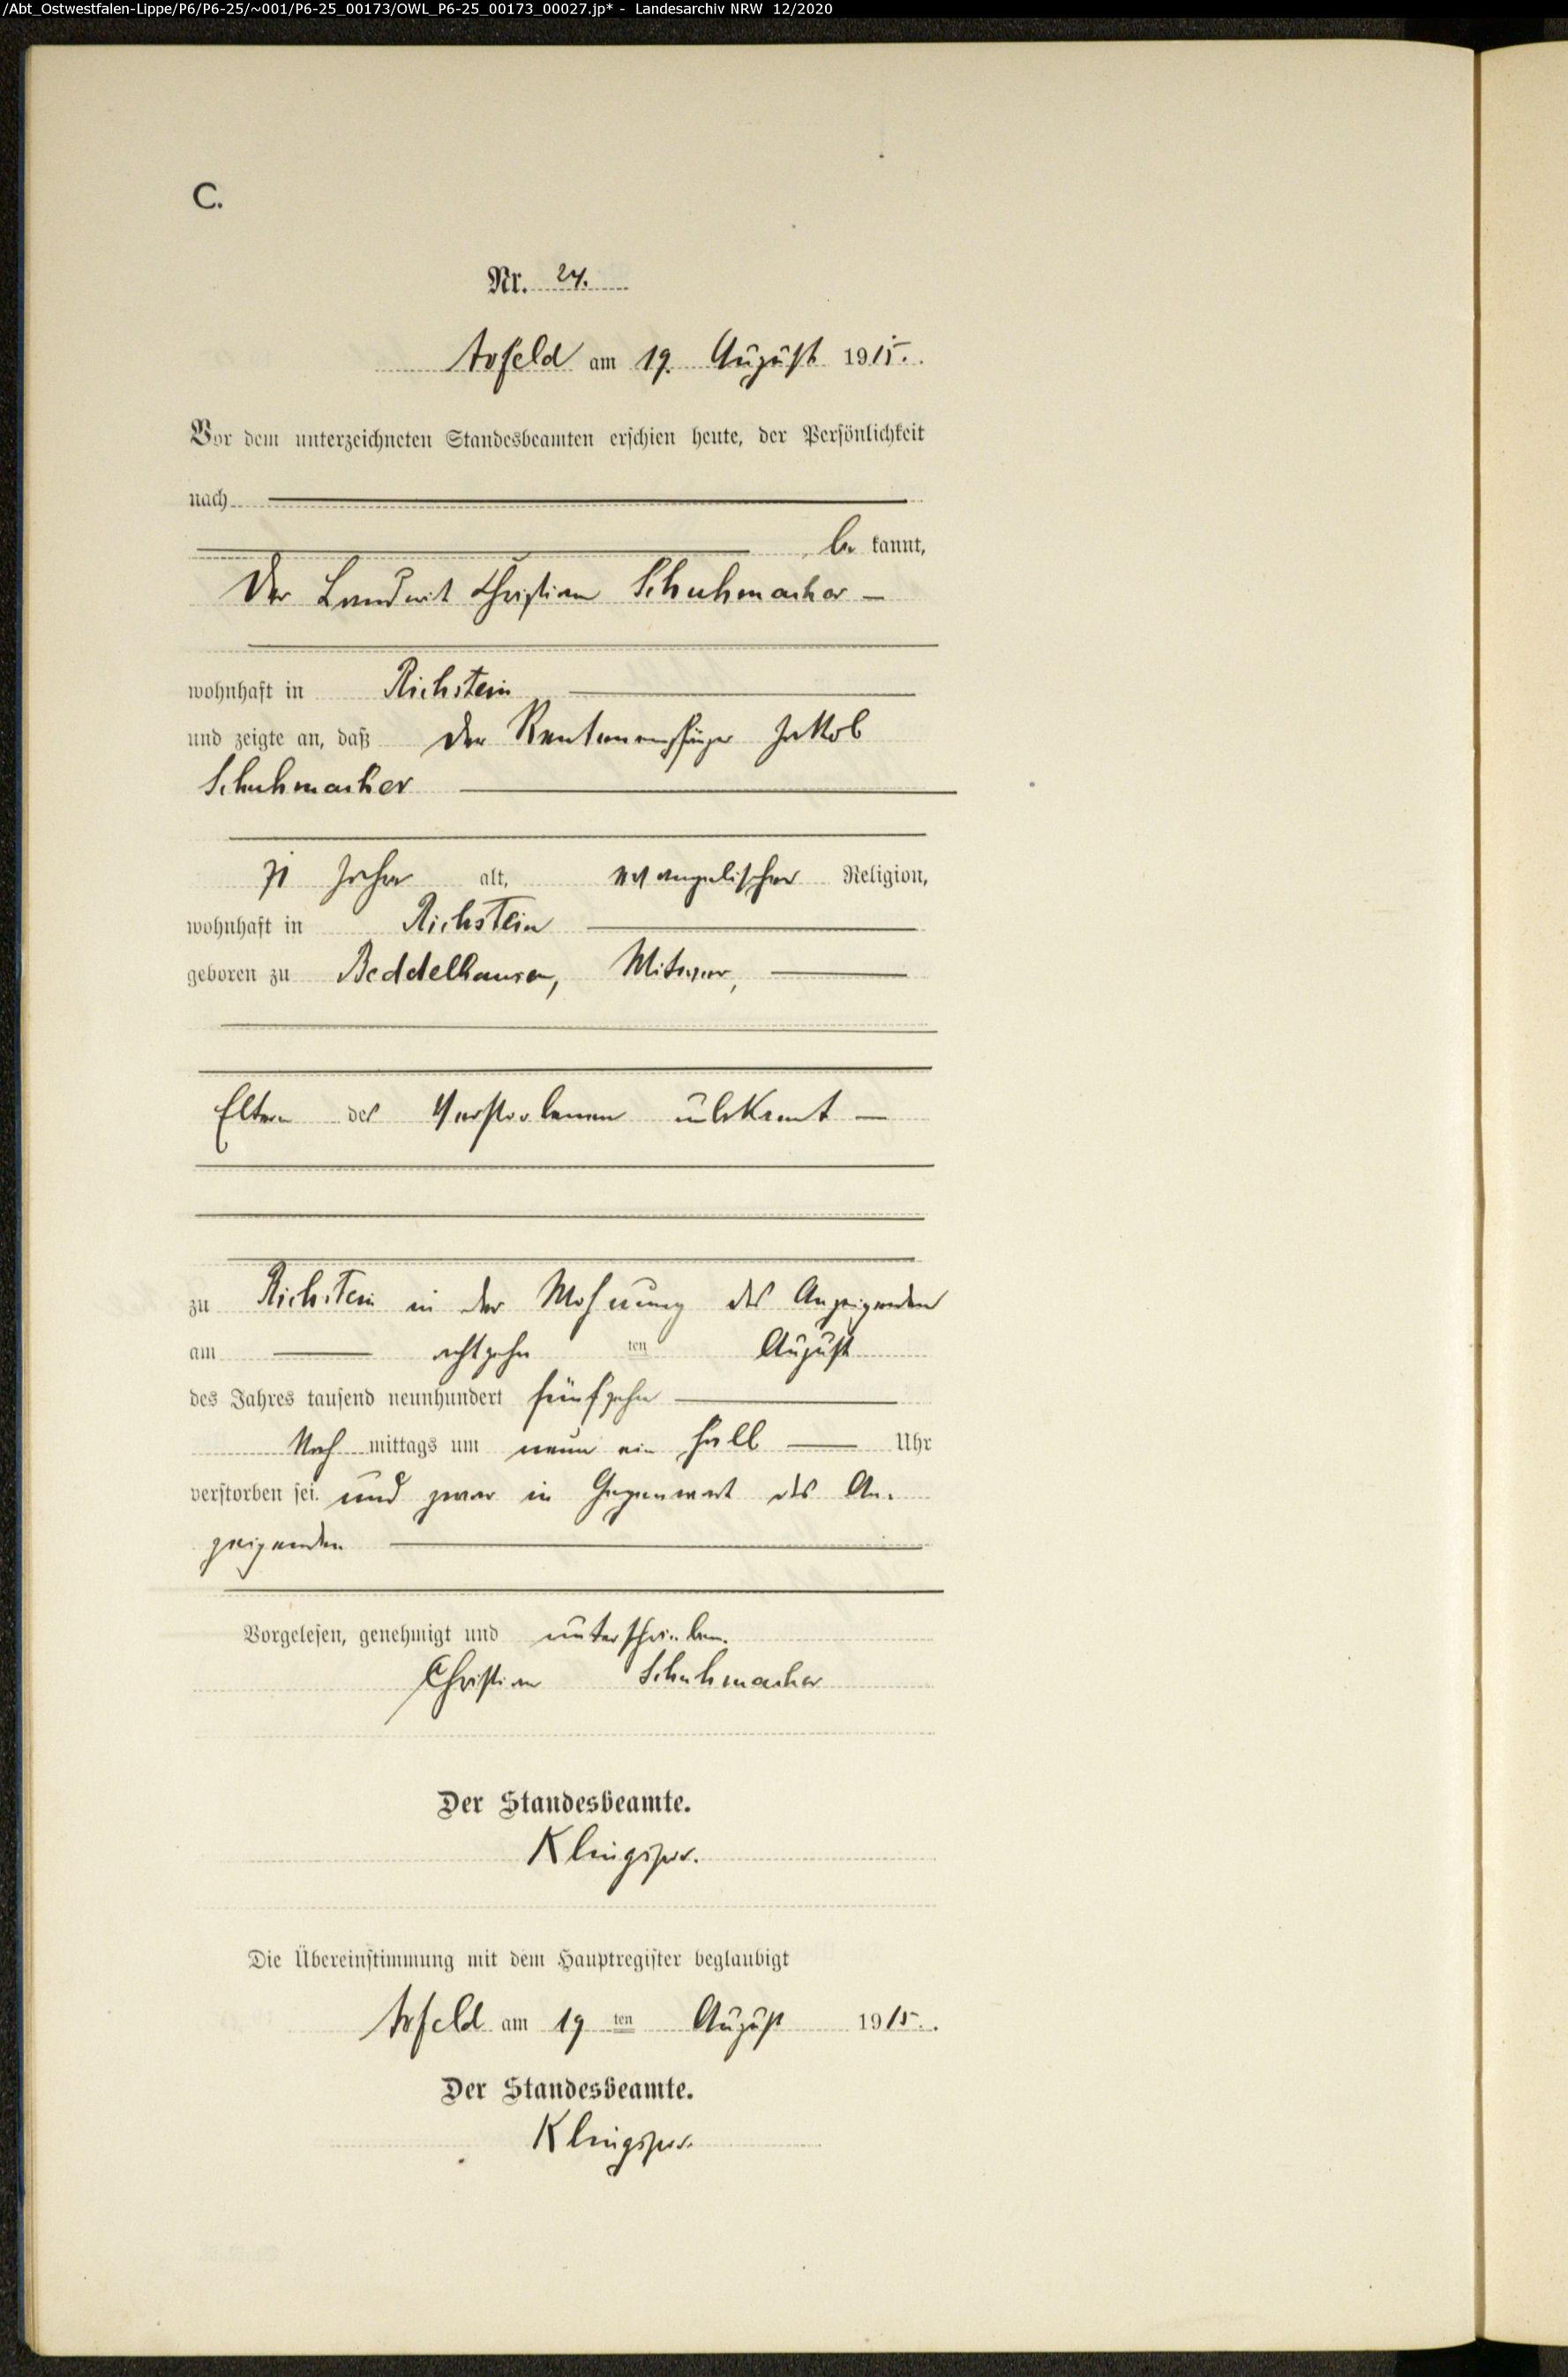 /Abt_Ostwestfalen-Lippe/P6/P6-25/~001/P6-25_00173/OWL_P6-25_00173_00027.jp* - Landesarchiv NRW 12/2020
C.
Nr. 24.
Arfeld am 19. August 1915.
Vor dem unterzeichneten Standesbeamten erschien heute, der Persönlichkeit
nach
be kannt,
Der Landwirt Christian Schuhmacher —
wohnhaft in Richstein
und zeigte an, daß der Rentenempfänger Jakob
Schuhmacher
71 Jahre alt, evangelischer Religion,
wohnhaft in Richstein
geboren zu Beddelhausen, Witwer,
Eltern des Verstorbenen unbekannt —
zu Richstein in der Wohnung des Anzeigenden
am achtzehn ten August
des Jahres tausend neunhundert fünfzehn
Nach mittags um neun ein halb Uhr
verstorben sei. und zwar in Gegenwart des An-
zeigenden
Vorgelesen, genehmigt und unterschrieben.
Christian Schuhmacher
Der Standesbeamte.
Klingspor.
Die Übereinstimmung mit dem Hauptregister beglaubigt
Arfeld am 19 ten August 1915.
Der Standesbeamte.
Klingspor.